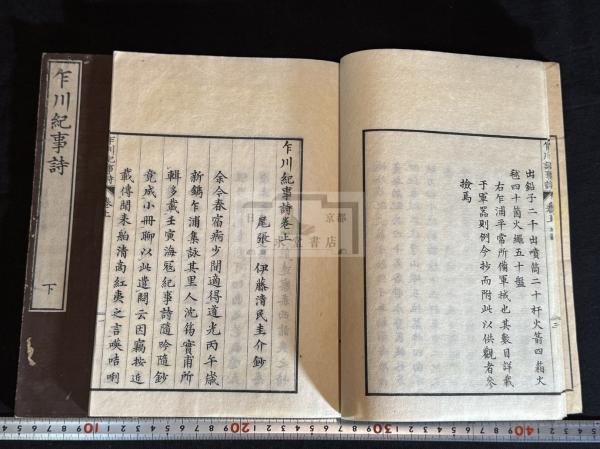 乍川紀事詩
下
出鉛子二千出噴筒二十杆火箭四箱火
毬四十箇火繩五十盤
右乍浦平常所備軍械也其數目詳載
于軍器則例今抄而附此以供觀者參
撿焉
乍川紀事詩卷上
尾張 伊藤清民圭介鈔
余今春宿痾少間適得道光丙午歲
新鐫乍浦集詠其里人沈筠實甫所
輯多載壬寅海冦紀事詩隨吟隨鈔
竟成小冊聊以此遣悶云因竊按近
載傳聞來舶清商紅夷之言暎咭唎
乍川紀事詩 卷上
10
20
30
40